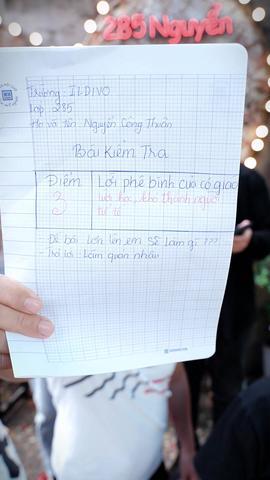 285 Nguyễn
Trường: ILDIVO
Lớp: 285
Họ và tên: Nguyễn Công Thuần
Bài Kiểm Tra
Điểm
Lời phê bình của cô giáo
3
lười học, khó thành người
tử tế
- Đề bài: Lớn lên em sẽ làm gì ???
- Trả lời: Làm quan nhậu